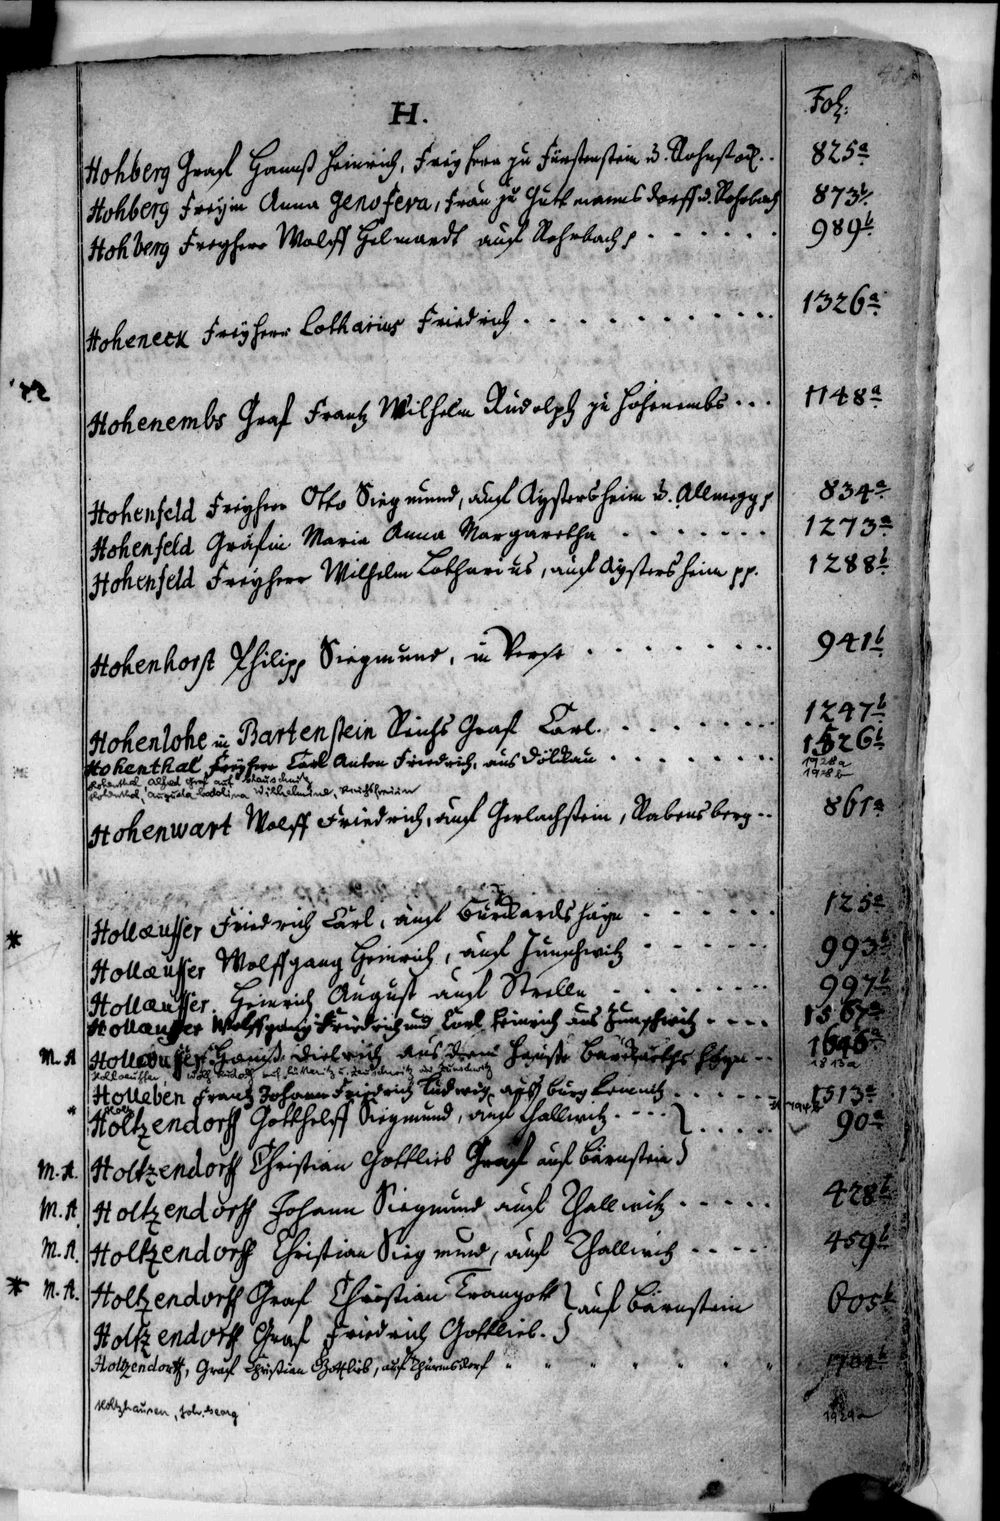 H.
Fol:
Hohberg Graf Hannß Heinrich, Freyherr zu Fürstenstein u. Rohnstock. . 825a
Hohberg Freyin Anna Genofeva, Frau zu Guttmannsdorff u. Rohrbach 873b
Hohberg Freyherr Wolff Helmardt auf Rohrbach p . . . . . . 989b
Hoheneck Freyherr Lotharius Friedrich . . . . . . . . . . 1326a
Hohenembs Graf Frantz Wilhelm Rudolph zu Hohenembs . . . 1148a
Hohenfeld Freyherr Otto Siegmund, auf Aystersheim u. Allmegg p 834a
Hohenfeld Gräfin Maria Anna Margaretha . . . . . . . 1273a
Hohenfeld Freyherr Wilhelm Lotharius, auf Aystersheim pp. 1288b
Hohenhorst Philipp Siegmund, in . . . . . . . 941b
Hohenlohe in Bartenstein Reichs Graf Carl. . . . . . . . 1247b
Hohenthal Freyherr Carl Anton Friedrich, aus Dölkau . . . . . . . 1526b
Hohenthal Alfred Graf auf 1928a
Hohenthal, Augusta Wilhelmine, 1928b
Hohenwart Wolff Friedrich, auf Gerlachstein, Rabensberg . . 861a
Hollæusser Friedrich Carl, auf Burckardshayn . . . . . . 125a
* Hollæusser Wolffgang Heinrich, auf Zunschwitz . . . . . . 993b
Hollæusser, Heinrich August auf Strelln . . . . . . . 997b
Hollæuser Wolffgang Friedrich und Carl Heinrich aus Zunschwitz . . . . 1567a
M. A. Hollæusser, Hannß Dietrich aus dem Hause 1646a
Hollaeusser, Rudolf 1813a
Holleben Frantz Johann Friedrich Ludwig, auf Burg Lemnitz . . . . . 1513a
* Holtzendorff Gotthelff Siegmund, auf Thallwitz . . . . } . . . . . 90a
M. A. Holtzendorff Christian Gottlieb Graf auf Bärnstein }
M. A. Holtzendorff Johann Siegmund auf Thallwitz . . . . . 428b
M. A. Holtzendorff Christian Siegmund, auf Thallwitz . . . . 459b
* M. A. Holtzendorff Graf Christian Traugott } auf Bärnstein 605b
Holtzendorff Graf Friedrich Gottlieb. }
Holtzendorff, Graf Christian Gottlieb, auf Thürmsdorf " " " " " " "
Holtzhausen, Joh. Georg 1929a